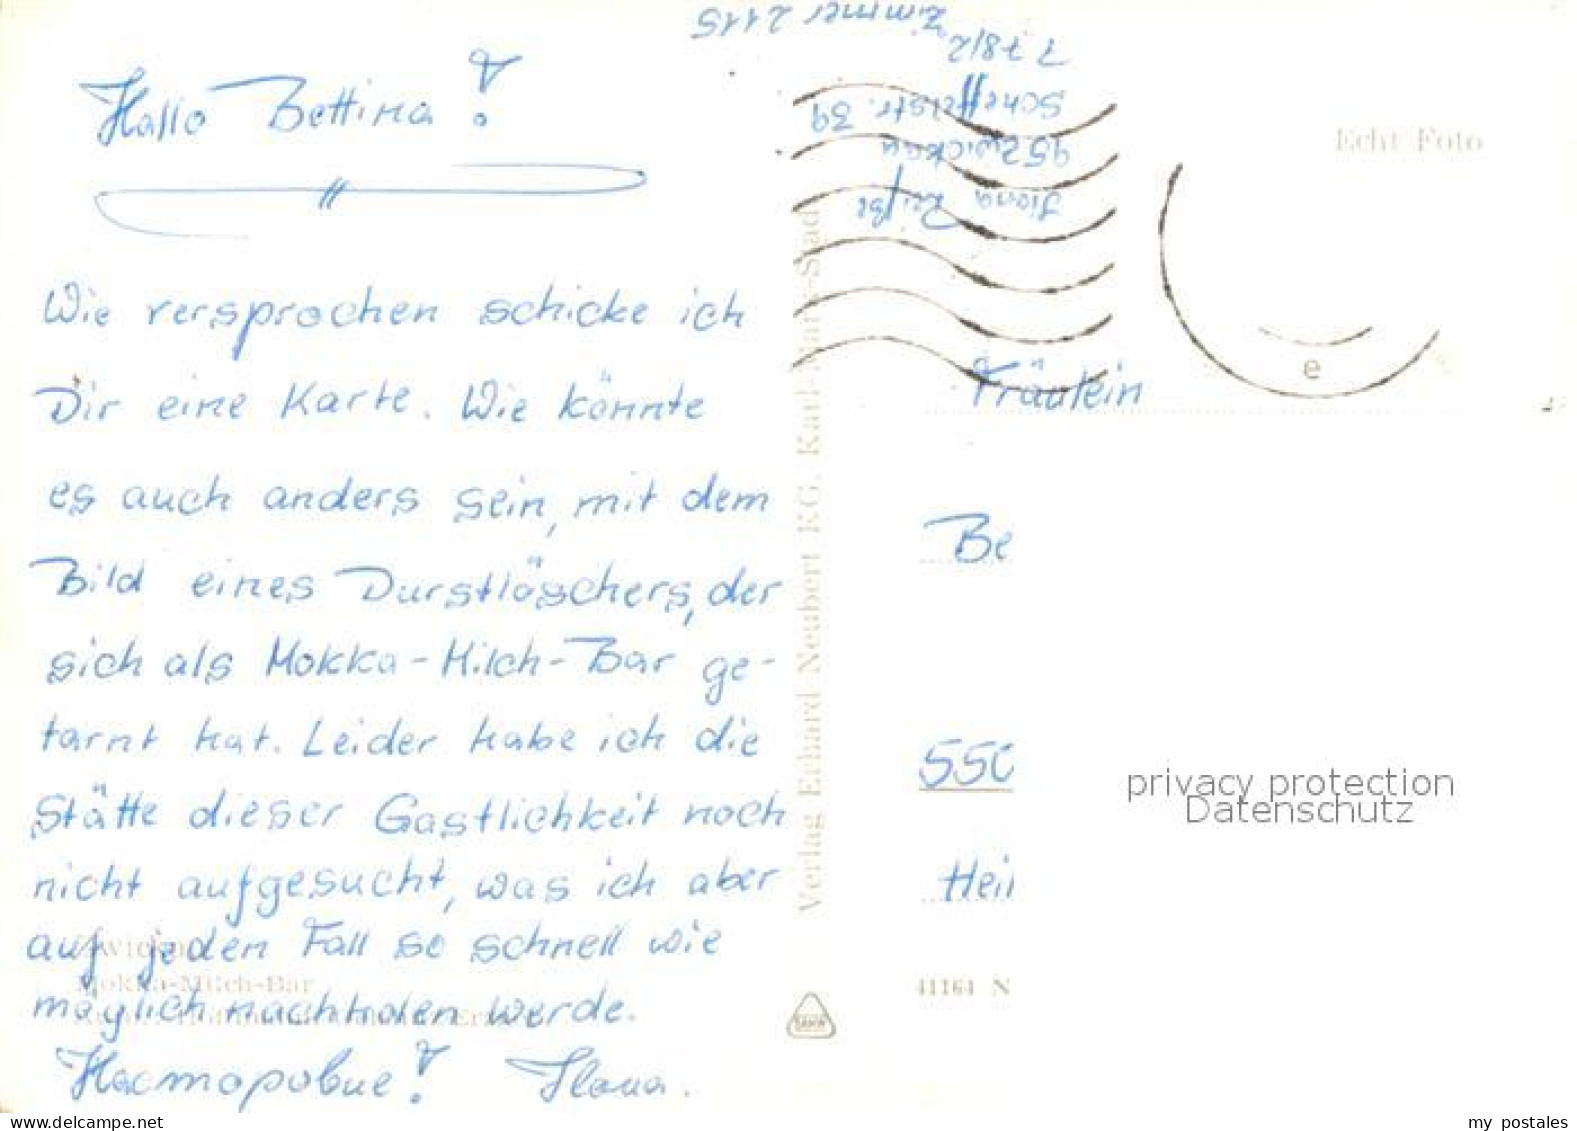 Hallo Bettina!
Wie versprochen schicke ich
Dir eine Karte. Wie könnte
es auch anders sein, mit dem
Bild eines Durstlöschers, der
sich als Mokka-Milch-Bar ge-
tarnt hat. Leider habe ich die
Stätte dieser Gastlichkeit noch
nicht aufgesucht, was ich aber
auf jeden Fall so schnell wie
möglich nachholen werde.
Наст Ilona.
Zwickau
Mokka-Milch-Bar
Verlag Erhard Neubert KG. Karl-Marx-Stadt
Ilona
95 Zwickau
Scheffelstr. 39
7 78/2
Zimmer 2115
Echt Foto
e
Fräulein
Be
550
Hei
privacy protection
Datenschutz
41164 N
my postales
www.delcampe.net